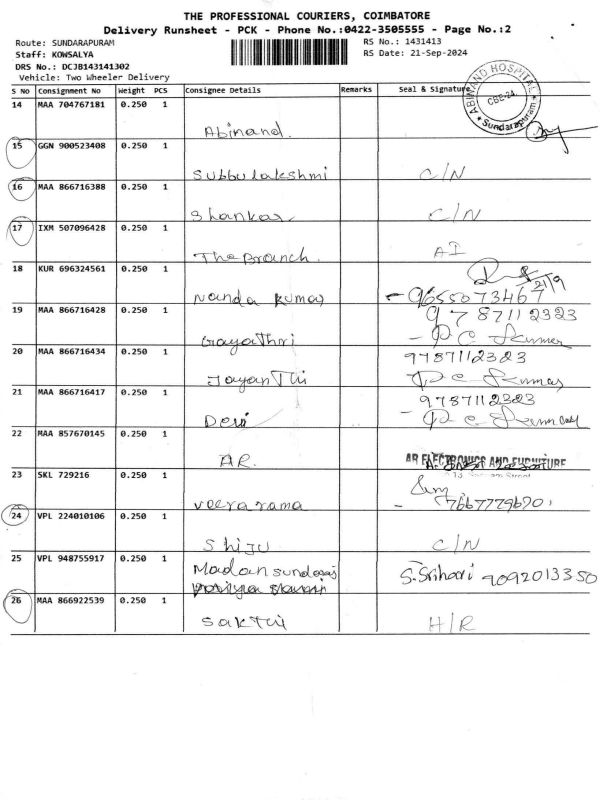 THE PROFESSIONAL COURIERS, COIMBATORE
Delivery Runsheet - PCK - Phone No.:0422-3505555 - Page No.:2
Route: SUNDARAPURAM
RS No.: 1431413
Staff: KOWSALYA
RS Date: 21-Sep-2024
DRS No.: DCJB143141302
Vehicle: Two Wheeler Delivery
ABINAND HOSPITAL
CBE-24.
Sundarapuram
S No Consignment No Weight PCS Consignee Details Remarks Seal & Signature
14 MAA 704767181 0.250 1
Abinand.
15 GGN 900523408 0.250 1
Subbulakshmi C/N
16 MAA 866716388 0.250 1
Shankar C/N
17 IXM 507096428 0.250 1
The Branch. AI
18 KUR 696324561 0.250 1
21/9
Nanda Kumar - 9655073467
19 MAA 866716428 0.250 1 9787112323
Gayathri - P C Kumar
20 MAA 866716434 0.250 1 9787112323
Jayanthi P C Kumar
21 MAA 866716417 0.250 1 9787112323
Devi - P C
22 MAA 857670145 0.250 1
AR. AR ELECTRONICS AND FURNITURE
23 SKL 729216 0.250 1
Veerarama - 7667779670
24 VPL 224010106 0.250 1
Shiju C/N
25 VPL 948755917 0.250 1
Madan sundaraj S. Srihari 9092013350
26 MAA 866922539 0.250 1
Sakthi H/R